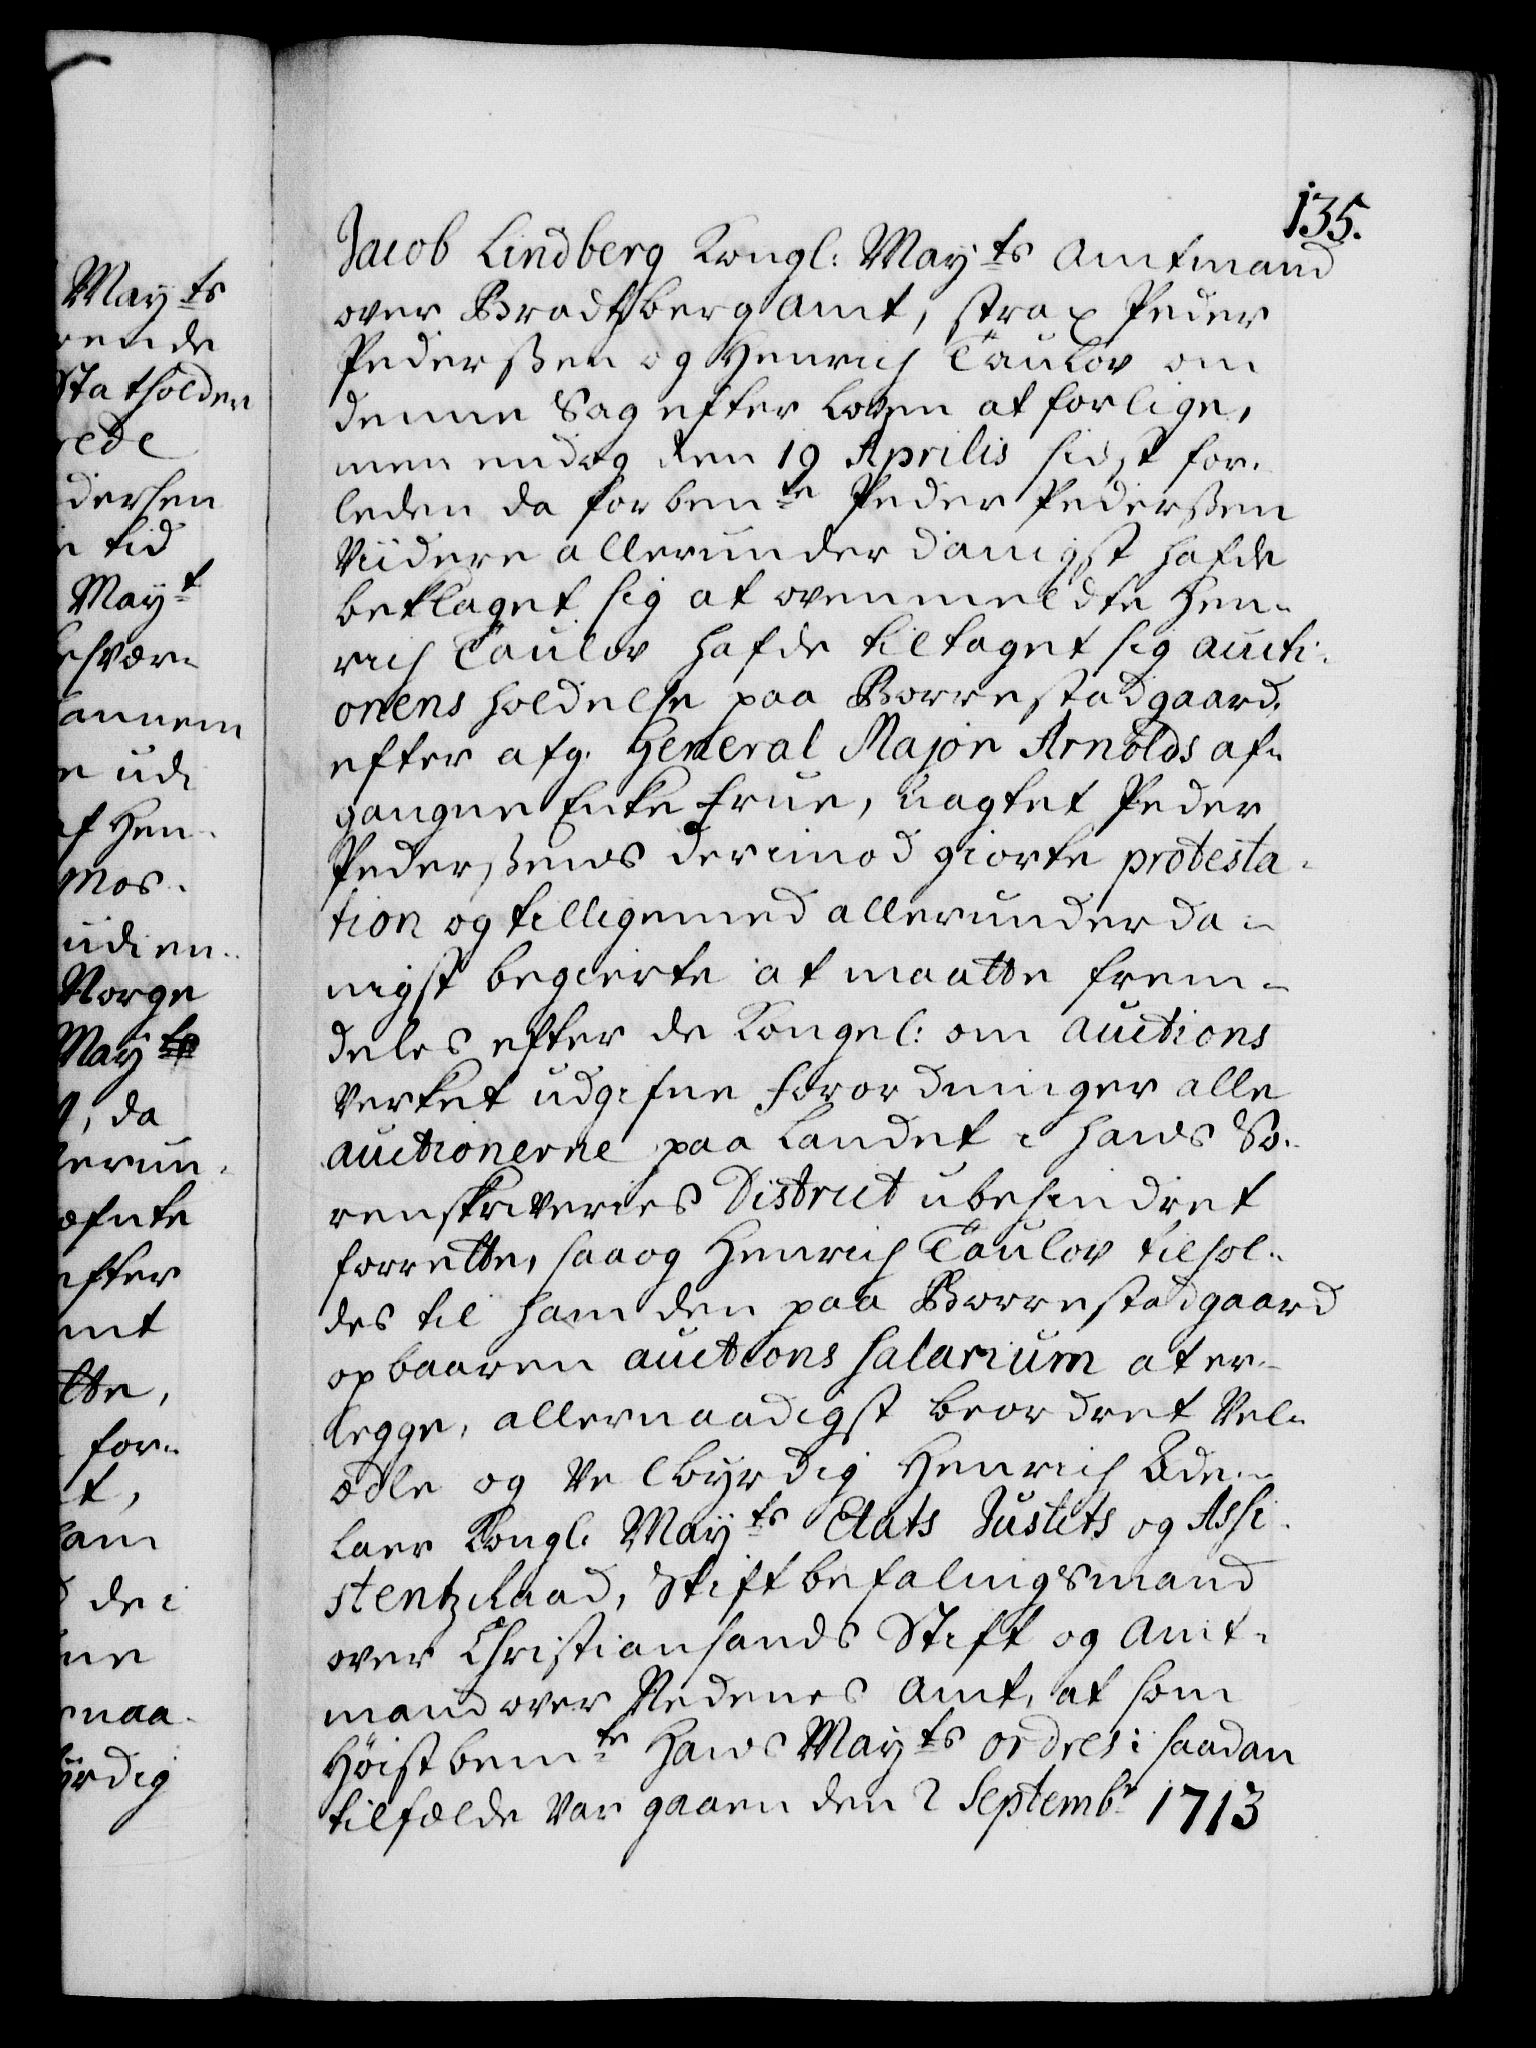 135.
Jacob Lindberg Kongl: Mayts Amtmand
over Bradtzberg Amt, strax Peder
Pederssen og Henrich Taulov om
denne Sag efter Loven at forlige,
men endog den 19 Aprilis sidst for-
leden da forbente Peder Pederssen
Viidere allerunderdanigst hafde
beklaget sig at ovenmeldte Hen-
rich Taulov hafde tiltaget sig aucti-
onens holdelse paa Borrestad gaard,
efter afg: General Major Arnolds af-
gangne Enke Frue, uagtet Peder
Pederssens derimod giorte protesta-
tion og tilligemed allerunderda-
nigst begierte at maatte frem-
deles efter de Kongel: om auctions
verket udgifne Forordninger alle
auctionerne paa Landet i hans So-
renskriveries District ubehindret
forrette, saa og Henrich Taulov tilhol-
des til ham den paa Borrestad gaard
opbaaren auctions salarium at er-
legge, allernaadigst beordret Vel-
ædle og Velbyrdig Henrich Ade-
laer Kongl: Mayts Etats Justits og Assi-
stentz Raad, Stiftbefalingsmand
over Christiansands Stift og Amt-
mand over Nedenes Amt, at som
Høistbemte Hans Mayts ordres i saadan
tilfælde var gaaen den 2 Septembr 1713
Mayts
rende
Statholder
rede
dersen
n tid
Mayt
esvær-
annem
n udi
af Hen-
mos-
udi en-
Norge
Mayts
, da
lerun-
æfnte
efter
mt
tte,
for-
t,
am
dei
ne
rnaa-
yrdig